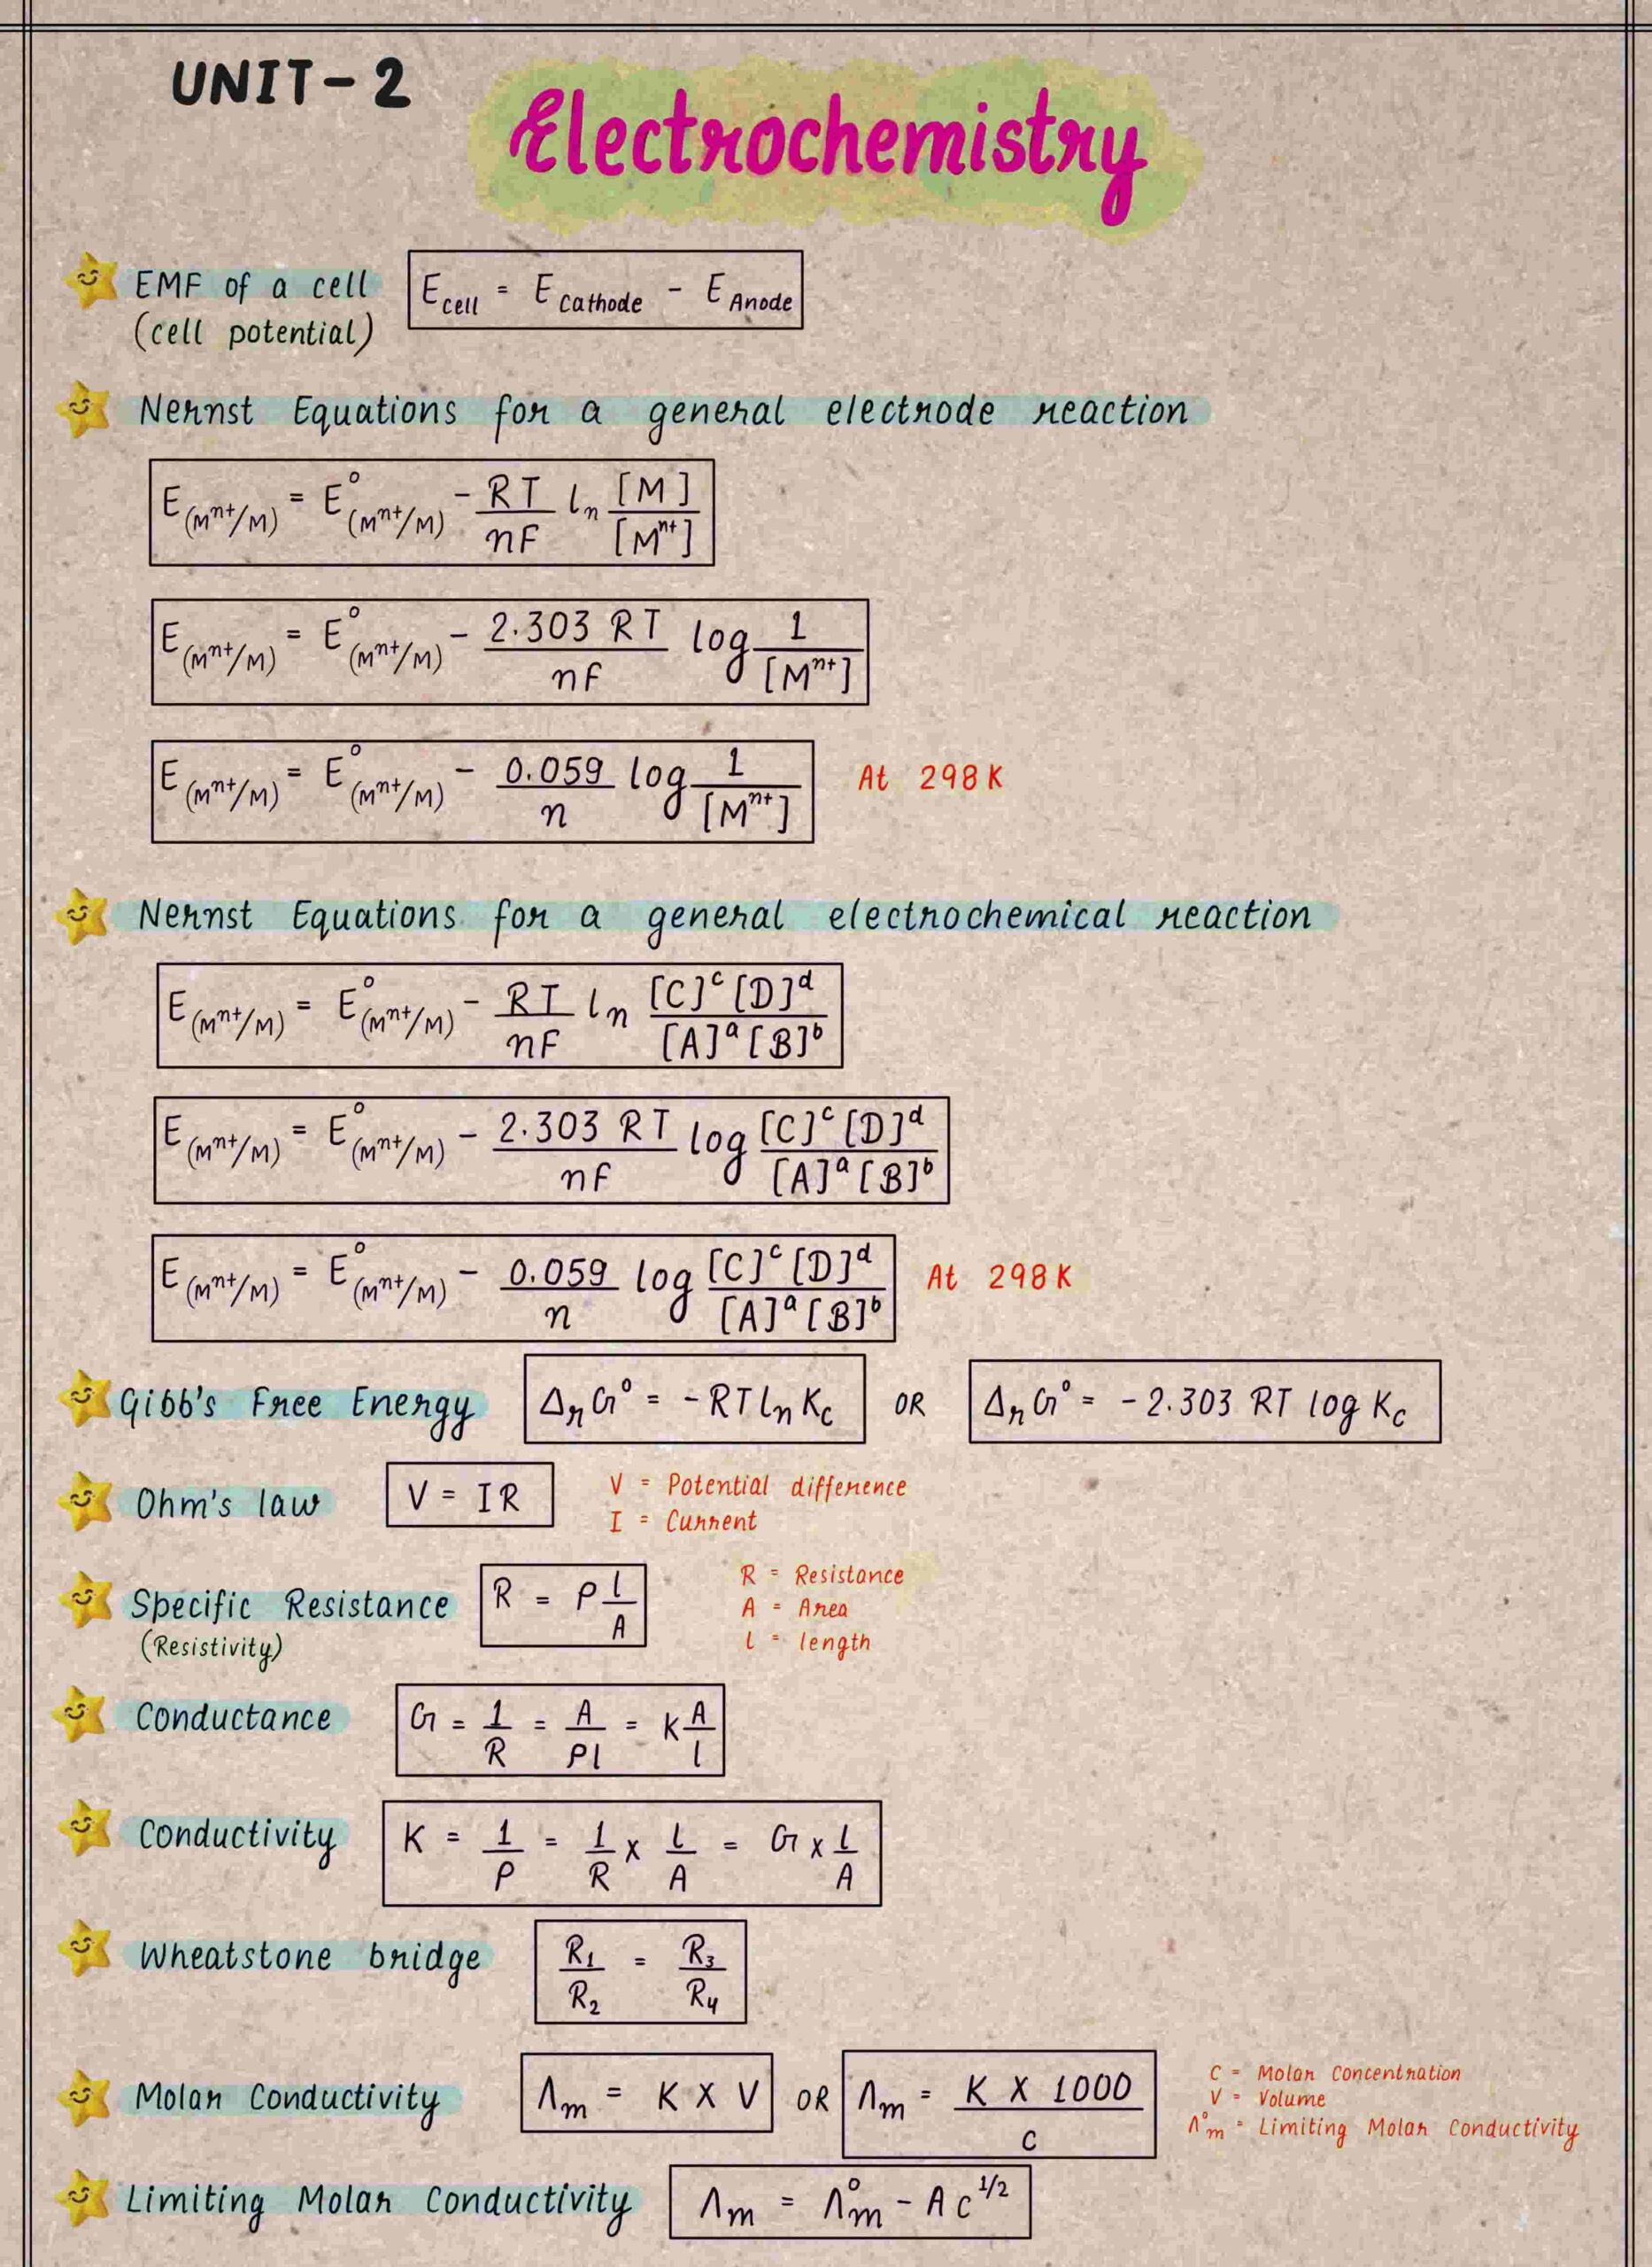 UNIT-2
Electrochemistry
EMF of a cell
(cell potential)
E_cell = E_Cathode - E_Anode
Nernst Equations for a general electrode reaction
E_(Mⁿ⁺/M) = E°_(Mⁿ⁺/M) - RT/nF ln [M]/[Mⁿ⁺]
E_(Mⁿ⁺/M) = E°_(Mⁿ⁺/M) - 2.303 RT/nF log 1/[Mⁿ⁺]
E_(Mⁿ⁺/M) = E°_(Mⁿ⁺/M) - 0.059/n log 1/[Mⁿ⁺] At 298 K
Nernst Equations for a general electrochemical reaction
E_(Mⁿ⁺/M) = E°_(Mⁿ⁺/M) - RT/nF ln [C]ᶜ[D]ᵈ/[A]ᵃ[B]ᵇ
E_(Mⁿ⁺/M) = E°_(Mⁿ⁺/M) - 2.303 RT/nF log [C]ᶜ[D]ᵈ/[A]ᵃ[B]ᵇ
E_(Mⁿ⁺/M) = E°_(Mⁿ⁺/M) - 0.059/n log [C]ᶜ[D]ᵈ/[A]ᵃ[B]ᵇ At 298 K
Gibb's Free Energy Δ_rG° = -RT ln K_c OR Δ_rG° = -2.303 RT log K_c
Ohm's law V = IR
V = Potential difference
I = Current
Specific Resistance
(Resistivity)
R = ρ l/A
R = Resistance
A = Area
l = length
Conductance G = 1/R = A/ρl = K A/l
Conductivity K = 1/ρ = 1/R x l/A = G x l/A
Wheatstone bridge R₁/R₂ = R₃/R₄
Molar Conductivity Λ_m = K X V OR Λ_m = K X 1000/C
C = Molar Concentration
V = Volume
Λ°_m = Limiting Molar Conductivity
Limiting Molar Conductivity Λ_m = Λ°_m - A c^1/2